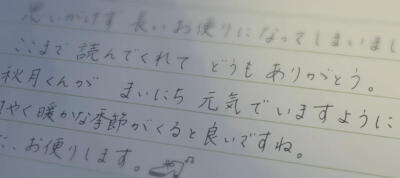 思いがけず 長いお便りになってしまいまし
ここまで 読んでくれて どうもありがとう。
秋月くんが まいにち 元気でいますように
やく暖かな季節がくると良いですね。
お便りします。